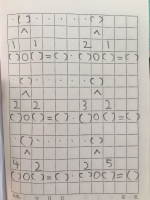 ( ) · · · · · · ( )
^ ^
1 1 2 1
( )○( )=( ) · ( )○( )=( )
( ) · · · · · · ( )
^ ^
2 2 3 2
( )○( )=( ) · ( )○( )=( )
( ) · · · · · · ( )
^ ^
4 2 2 5
( )○( )=( ) · ( )○( )=( )